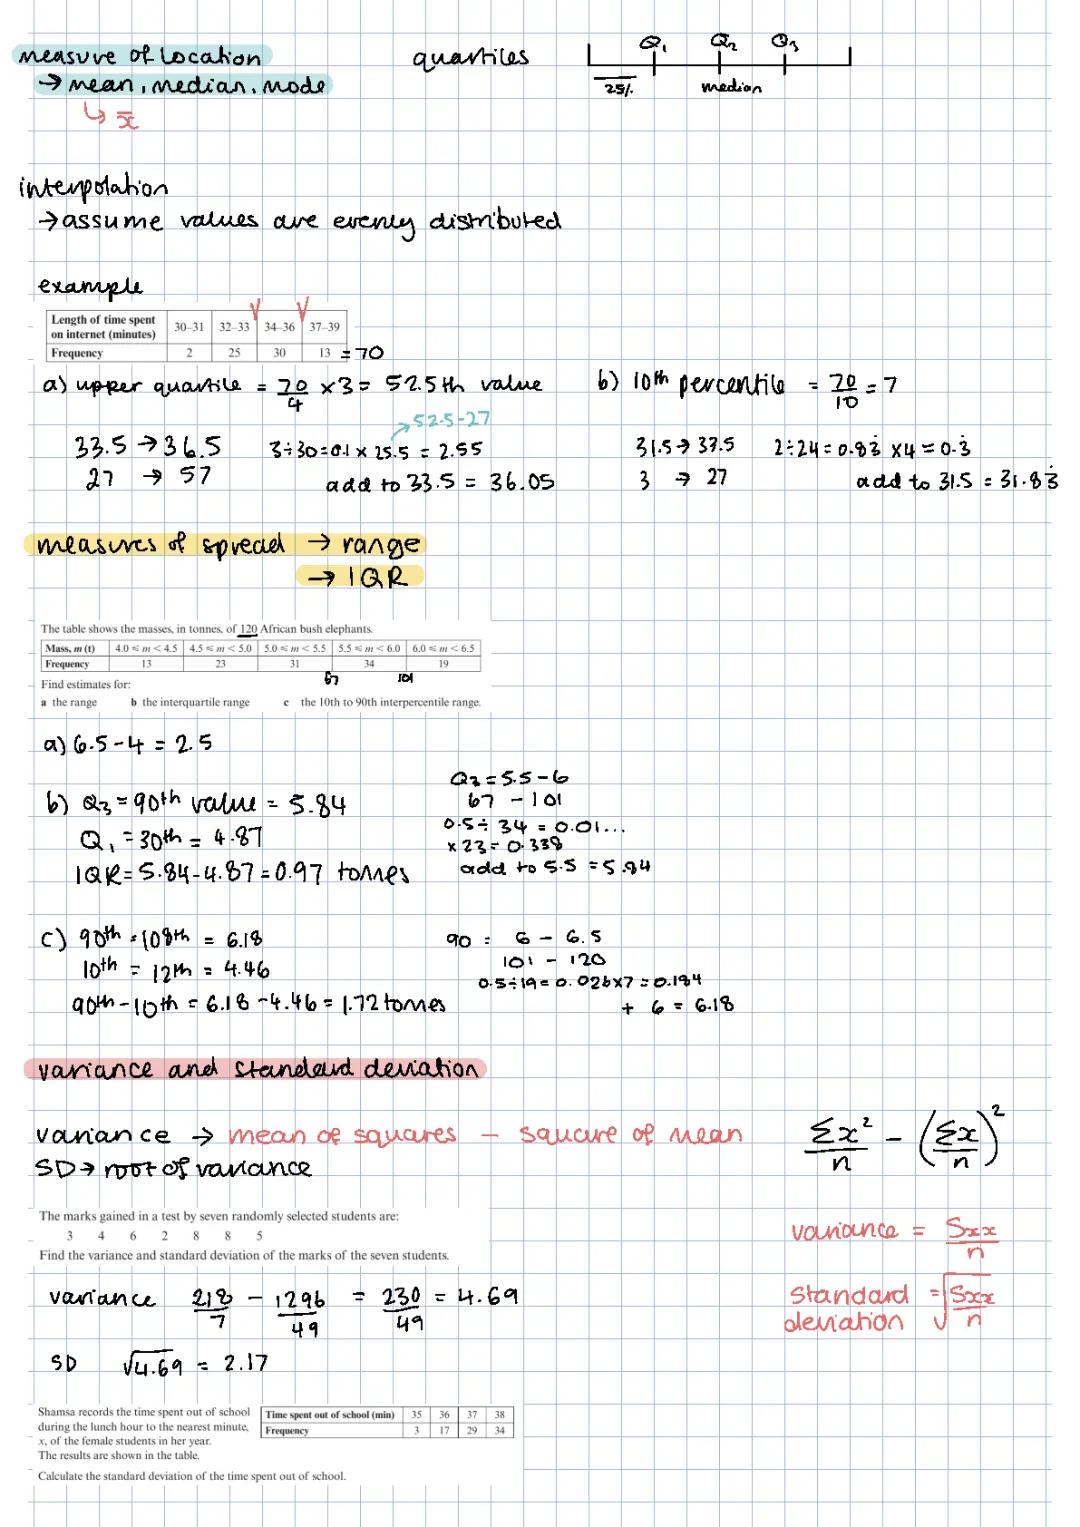 measure of location
→ mean, median, mode
↳ x̄
quartiles
Q₁ Q₂ Q₃
25%. median
interpolation
→ assume values are evenly distributed
example
Length of time spent on internet (minutes) 30–31 32–33 34–36 37–39
Frequency 2 25 30 13 = 70
a) upper quartile = 70/4 × 3 = 52.5th value
→ 52.5-27
33.5 → 36.5 3÷30=0.1 × 25.5 = 2.55
27 → 57 add to 33.5 = 36.05
b) 10th percentile = 70/10 = 7
31.5 → 33.5 2÷24 = 0.83̇ ×4 = 0.3̇
3 → 27 add to 31.5 = 31.83̇
measures of spread → range
→ IQR
The table shows the masses, in tonnes, of 120 African bush elephants.
Mass, m (t) 4.0 ⩽ m < 4.5 4.5 ⩽ m < 5.0 5.0 ⩽ m < 5.5 5.5 ⩽ m < 6.0 6.0 ⩽ m < 6.5
Frequency 13 23 31 34 19
67 101
Find estimates for:
a the range b the interquartile range c the 10th to 90th interpercentile range.
a) 6.5 - 4 = 2.5
b) Q₃ = 90th value = 5.84
Q₁ = 30th = 4.87
IQR = 5.84 - 4.87 = 0.97 tonnes
Q₃ = 5.5 - 6
67 - 101
0.5 ÷ 34 = 0.01...
× 23 = 0.338
add to 5.5 = 5.84
c) 90th = 108th = 6.18
10th = 12th = 4.46
90th - 10th = 6.18 - 4.46 = 1.72 tonnes
90 = 6 - 6.5
101 - 120
0.5÷19 = 0.026×7 = 0.184
+ 6 = 6.18
variance and standard deviation
variance → mean of squares - square of mean
SD → root of variance
Σx²/n - (Σx/n)²
The marks gained in a test by seven randomly selected students are:
3 4 6 2 8 8 5
Find the variance and standard deviation of the marks of the seven students.
variance 218/7 - 1296/49 = 230/49 = 4.69
SD √4.69 = 2.17
variance = Sxx/n
standard deviation = √Sxx/n
Shamsa records the time spent out of school
during the lunch hour to the nearest minute,
x, of the female students in her year.
The results are shown in the table.
Time spent out of school (min) 35 36 37 38
Frequency 3 17 29 34
Calculate the standard deviation of the time spent out of school.